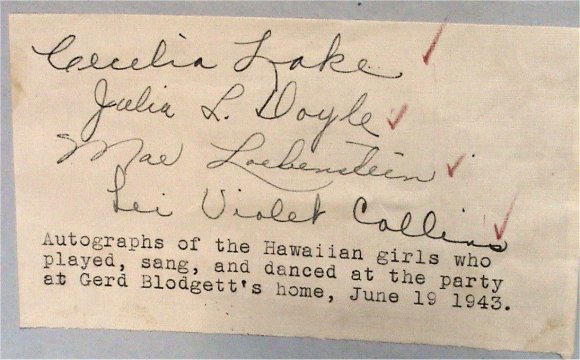 Cecilia Lake
Julia L. Doyle
Mae Loebenstein
Lei Violet Collins
Autographs of the Hawaiian girls who
played, sang, and danced at the party
at Gerd Blodgett's home, June 19 1943.